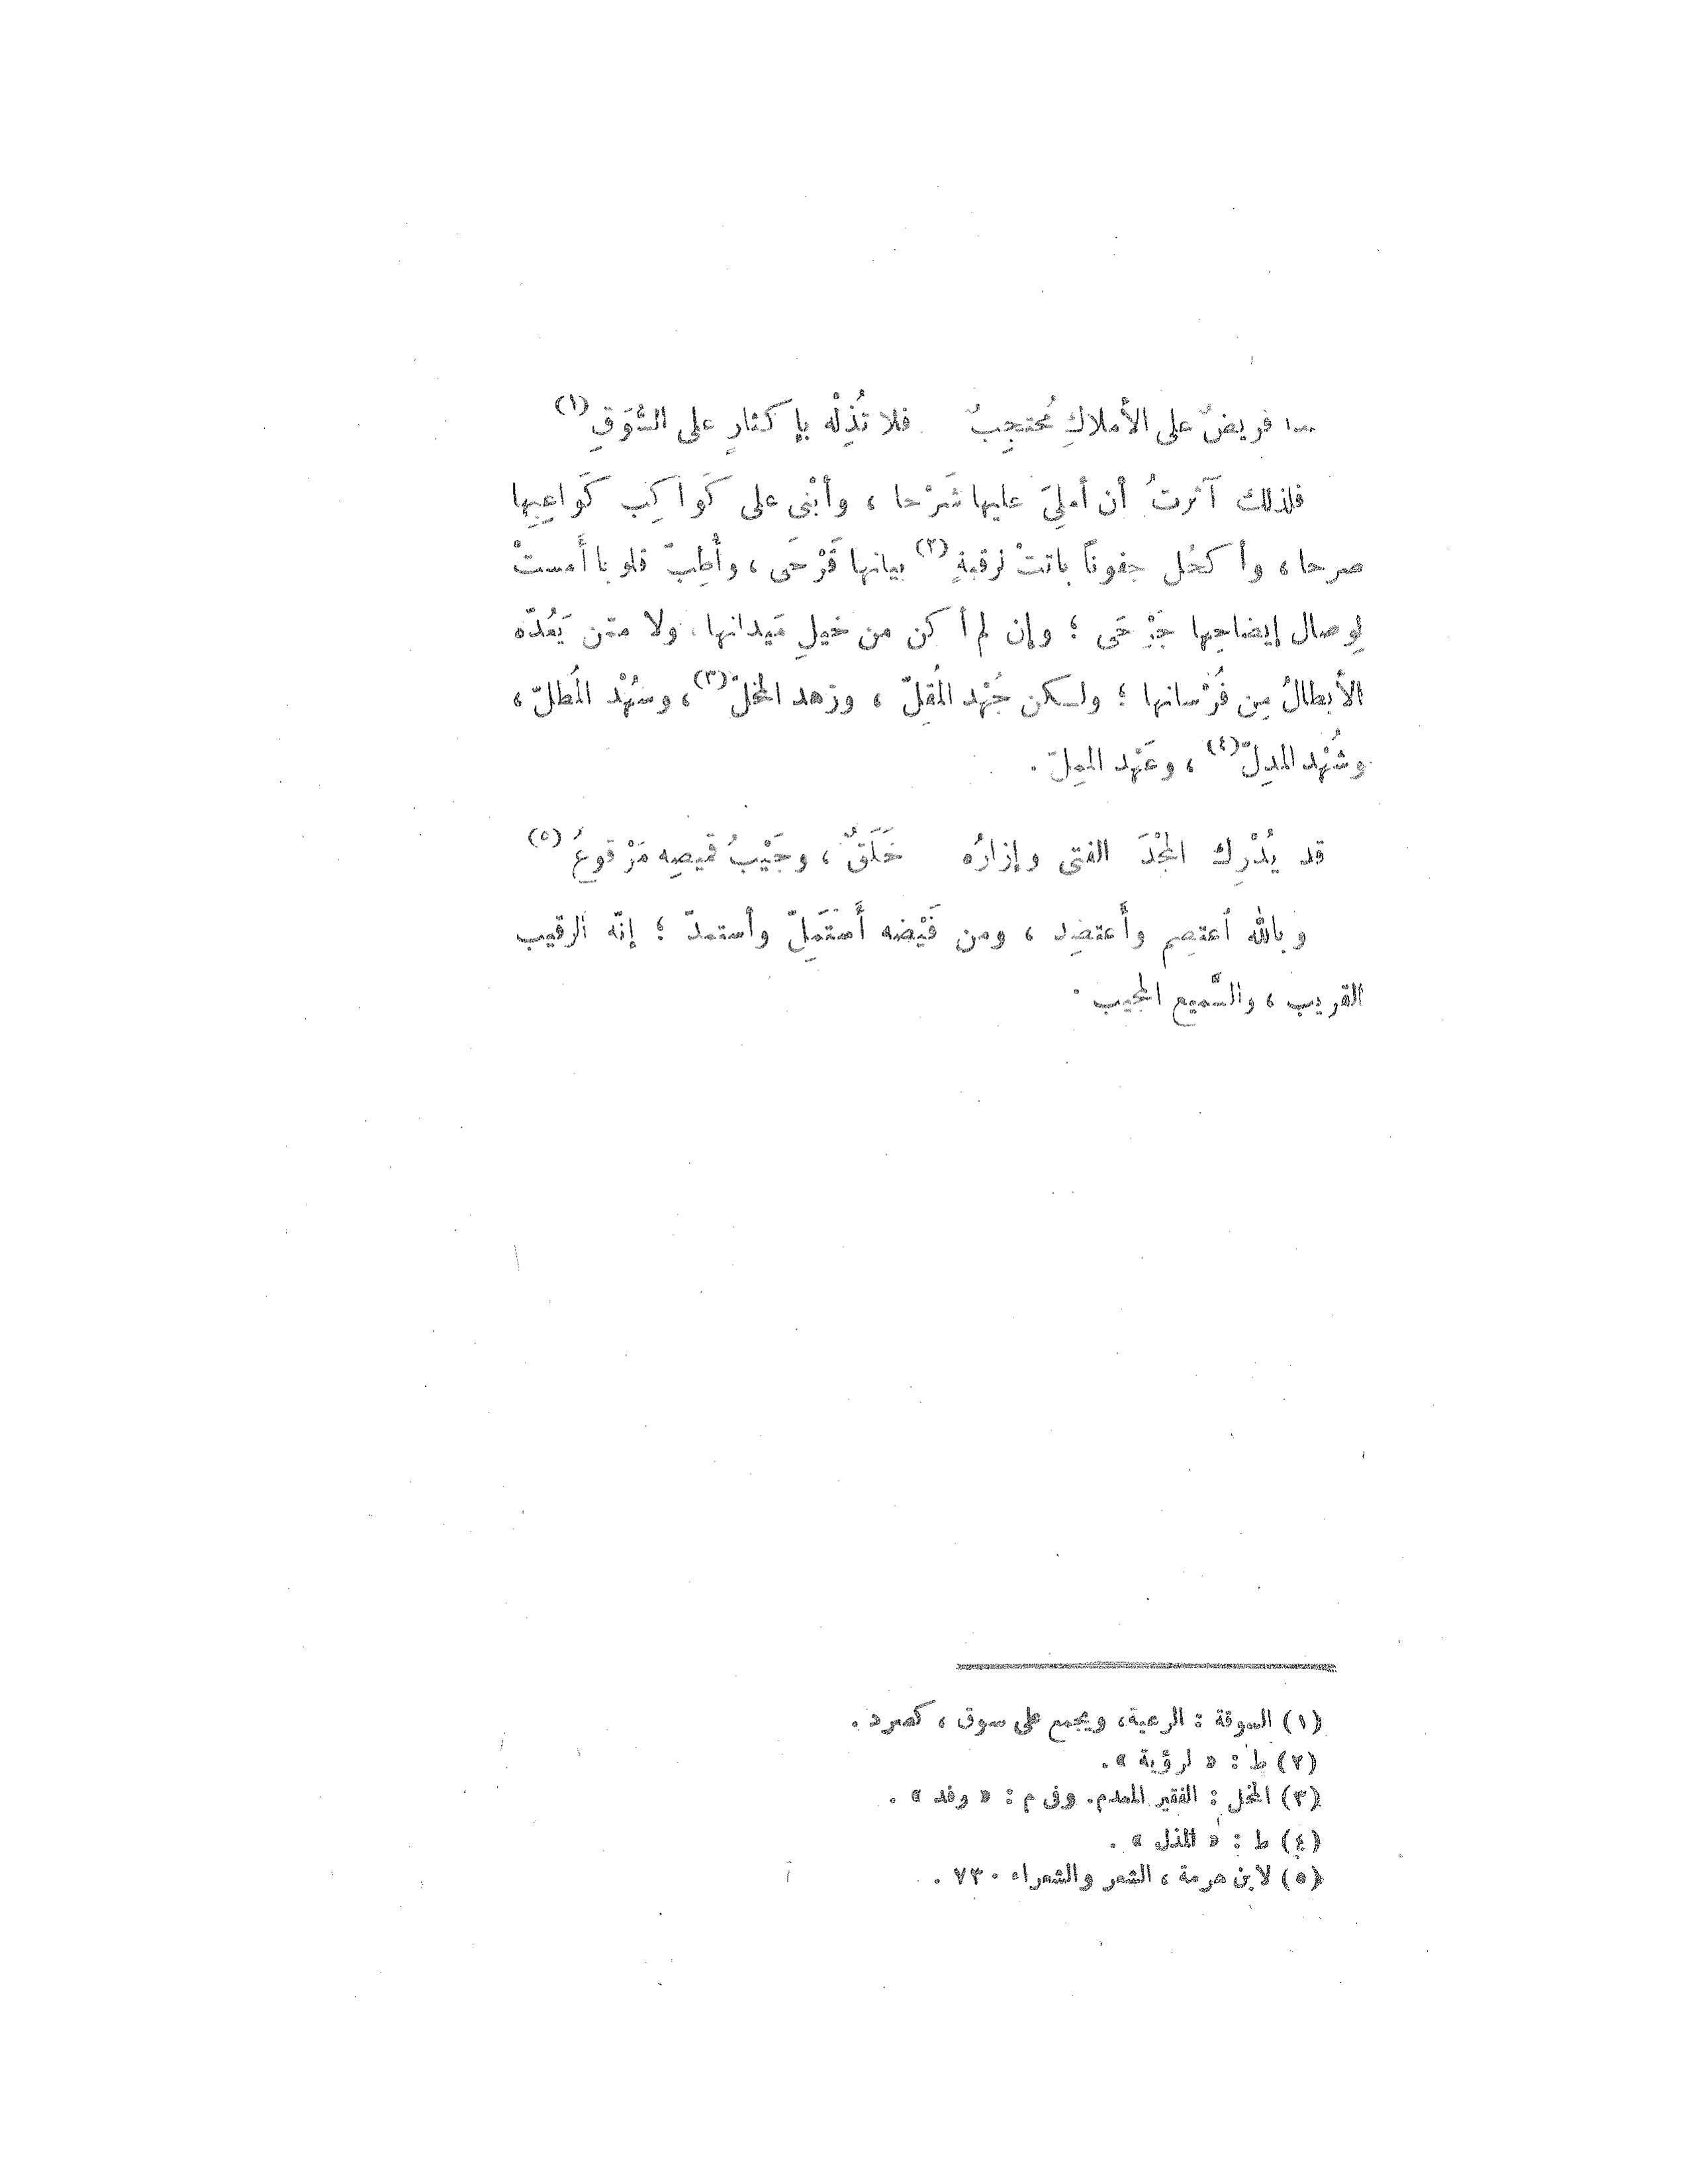 فريضٌ على الأملاكِ مُحتجِبٌ فلا تُذِلْه بإكثارٍ على السُّوَقِ (١)
فلذلك آثرتُ أن أملِيَ عليها شَرْحا ، وأبْنى على كَواكِب كَواعِبِها
صرحا ، وأكحُل جفوناً باتتْ لرقبةِ (٢) بيانها قَرْحَى ، وأُطِبّ قلوبا أَمستْ
لِوصال إيضاحِها جَرْحَى ؛ وإن لم أكن من خيلِ مَيدانها ، ولا ممّن يَعُدّه
الأبطالُ مِن فُرْسانها ؛ ولكن جُهْد المُقِلّ ، وزهد المخلّ (٣) ، وسُهْد المُطلّ ،
وشُهْد المدِلّ (٤) ، وعَهْد الملِلّ .
قد يُدْرِك المجْدَ الفتى وإزارُه خَلَقٌ ، وجَيْبُ قميصِه مَرْقوعُ (٥)
وبالله أعتصِم وأَعتضِد ، ومن فَيْضه أَستَمِلّ وأستمدّ ؛ إنّه الرقيب
القريب ، والسَّميع المجيب .
(١) السوقة : الرعية ، ويجمع على سوق ، كصرد .
(٢) ط : « لرؤية » .
(٣) المخل : الفقير المعدم . وفى م : « وفد » .
(٤) ط : « المذل » .
(٥) لابن هرمة ، الشعر والشعراء ٧٣٠ .